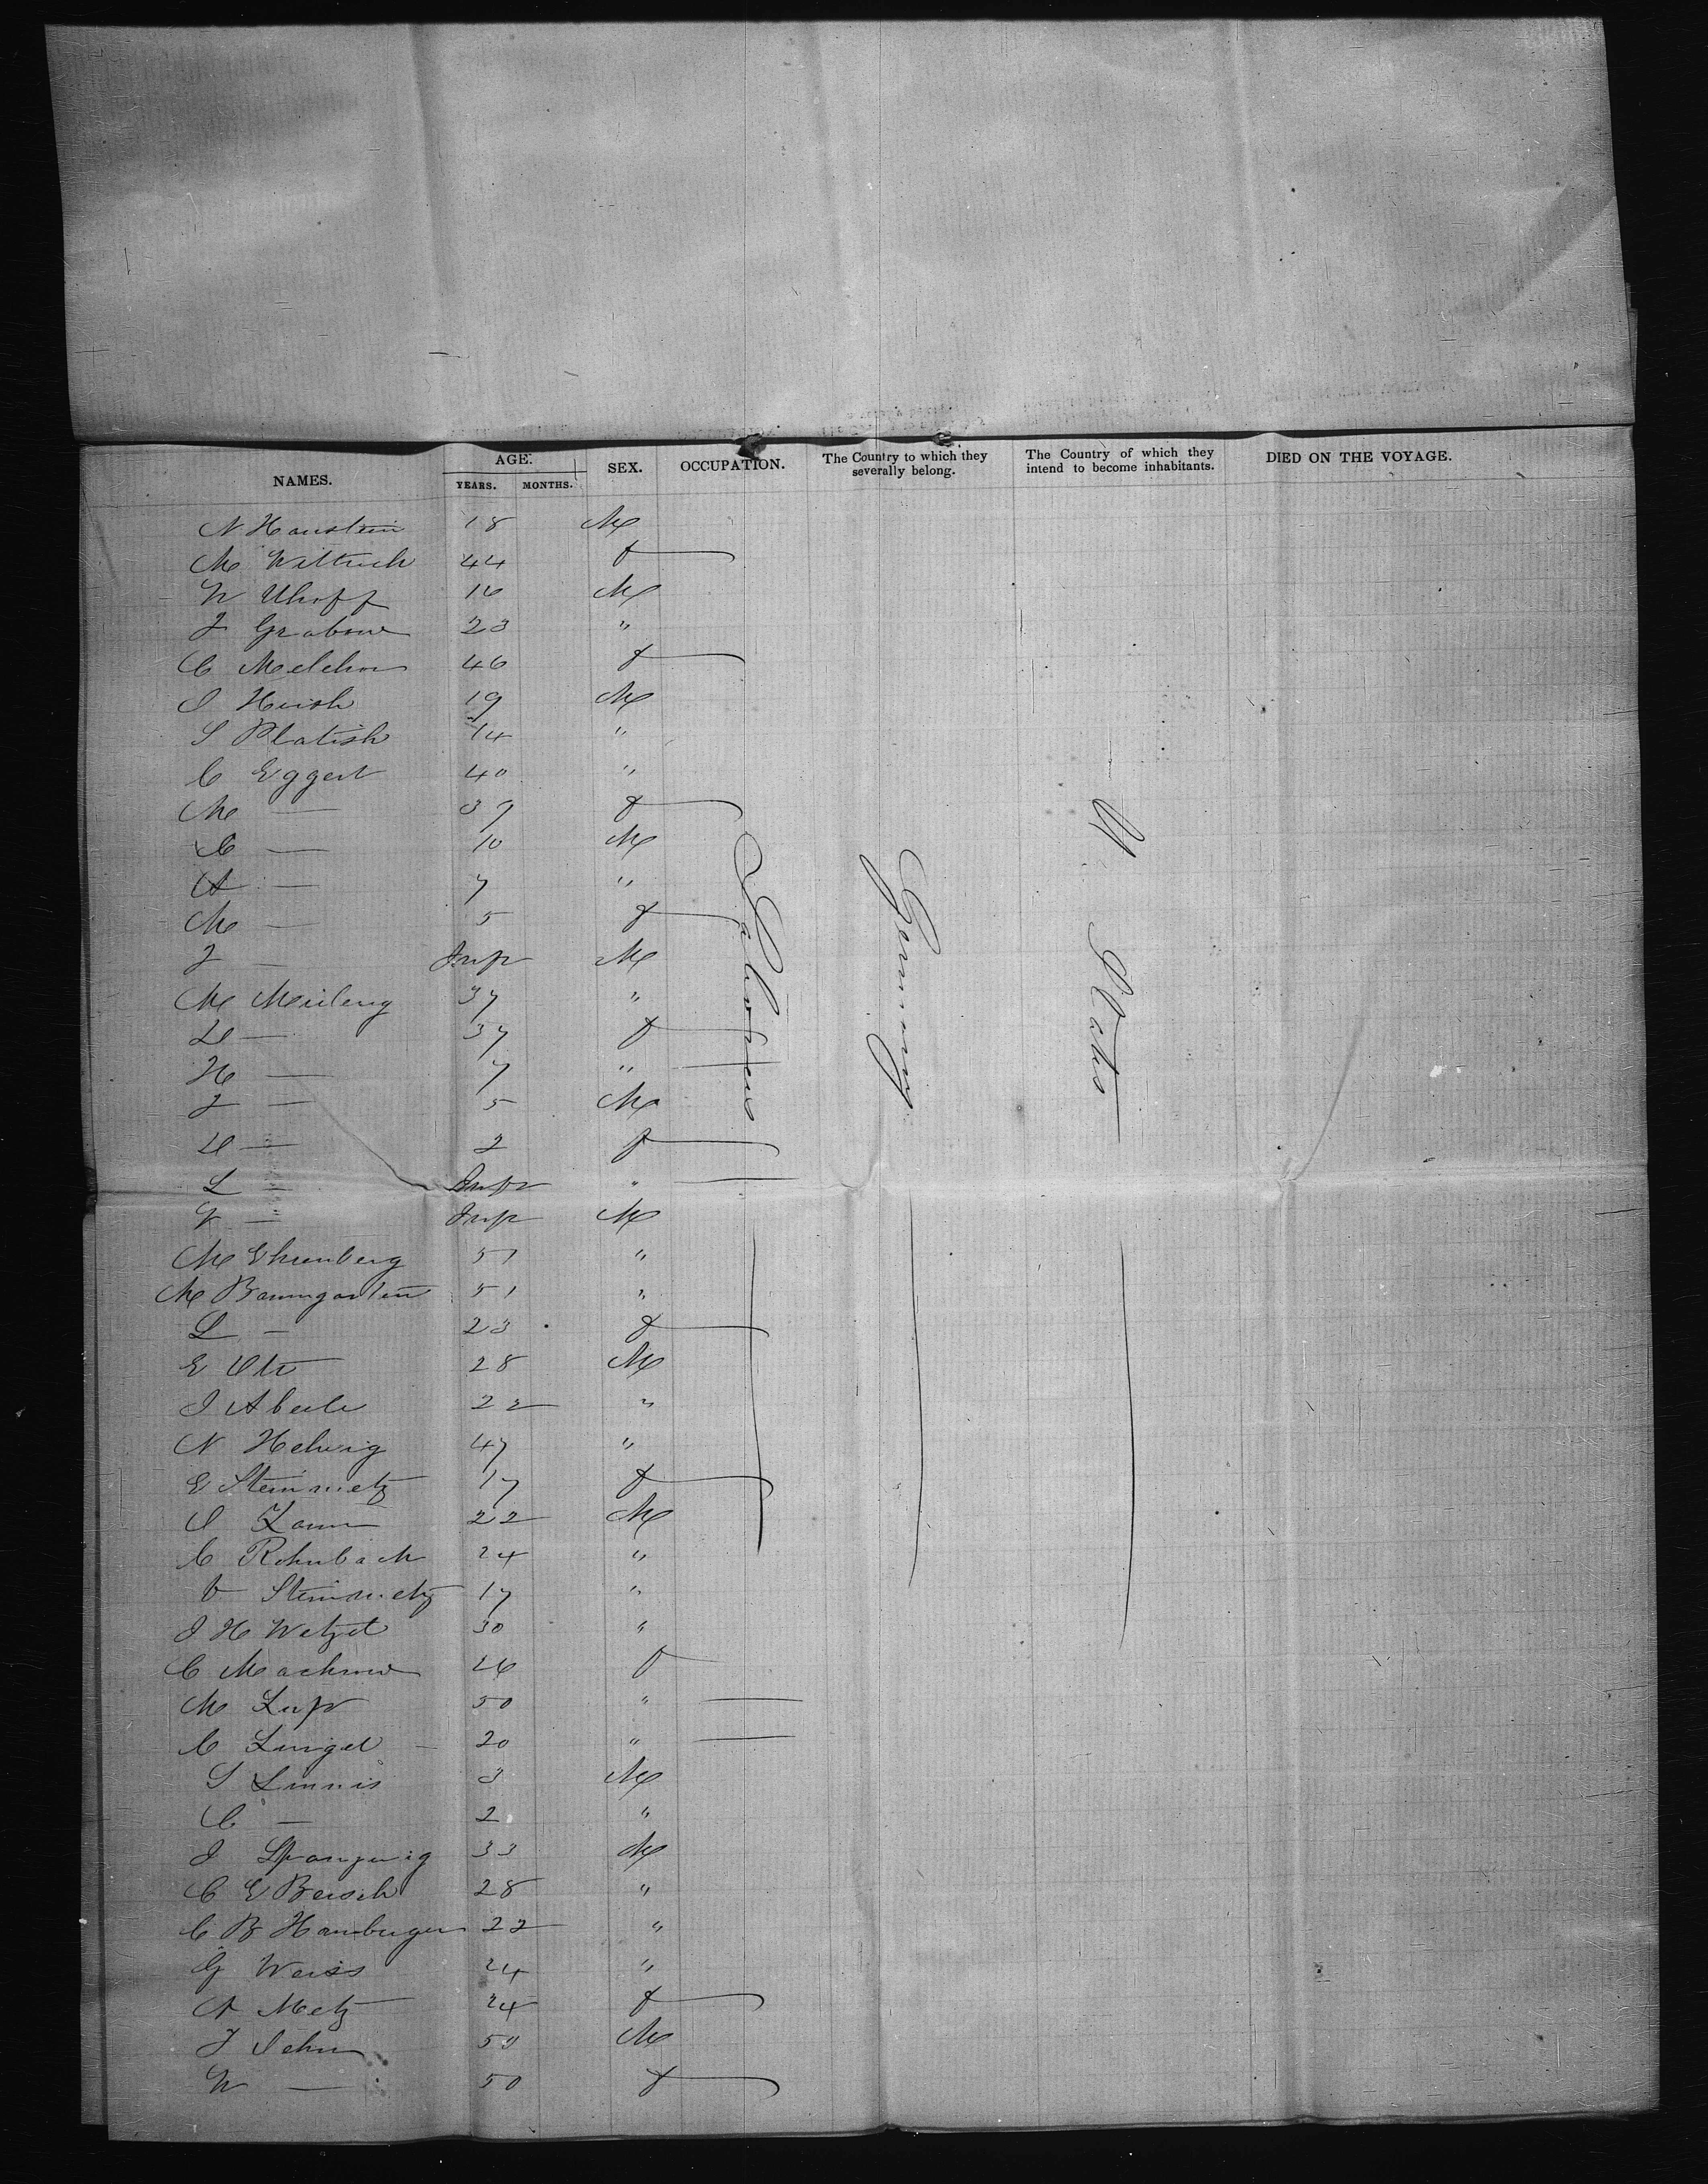 NAMES. AGE. YEARS. MONTHS. SEX. OCCUPATION. The Country to which they severally belong. The Country of which they intend to become inhabitants. DIED ON THE VOYAGE.
N Haustein 18 M
M Wittrich 44 f
W Uhoff 16 M
J Grabow 23 "
C Melchior 46 f
I Hirsh 19 M
S Platish 14 "
C Eggert 40 "
M — 39 f
C — 10 M
A — 7 "
M — 5 f
J — Inf M
M 37 "
— 37 f
H — 7 "
J — 5 M
— 2 f
L — Inf "
— Inf M
Labourers Germany U States
M Ehrenberg 51 "
M Baumgarten 51 "
L — 23 f
E Ott 28 M
J Aberle 22 "
N Helwig 47 "
E Steinmetz 17 f
22 M
C Rohrbach 24 "
Steinmetz 17 "
J H Wetzel 30 "
C Machow 26 f
M 50 "
C 20 "
S 3 M
C — 2 "
J 33 M
C E Bersch 28 "
C B Hamburger 22 "
G Weiss 24 "
A Metz 24 f
J M
W — 50 f